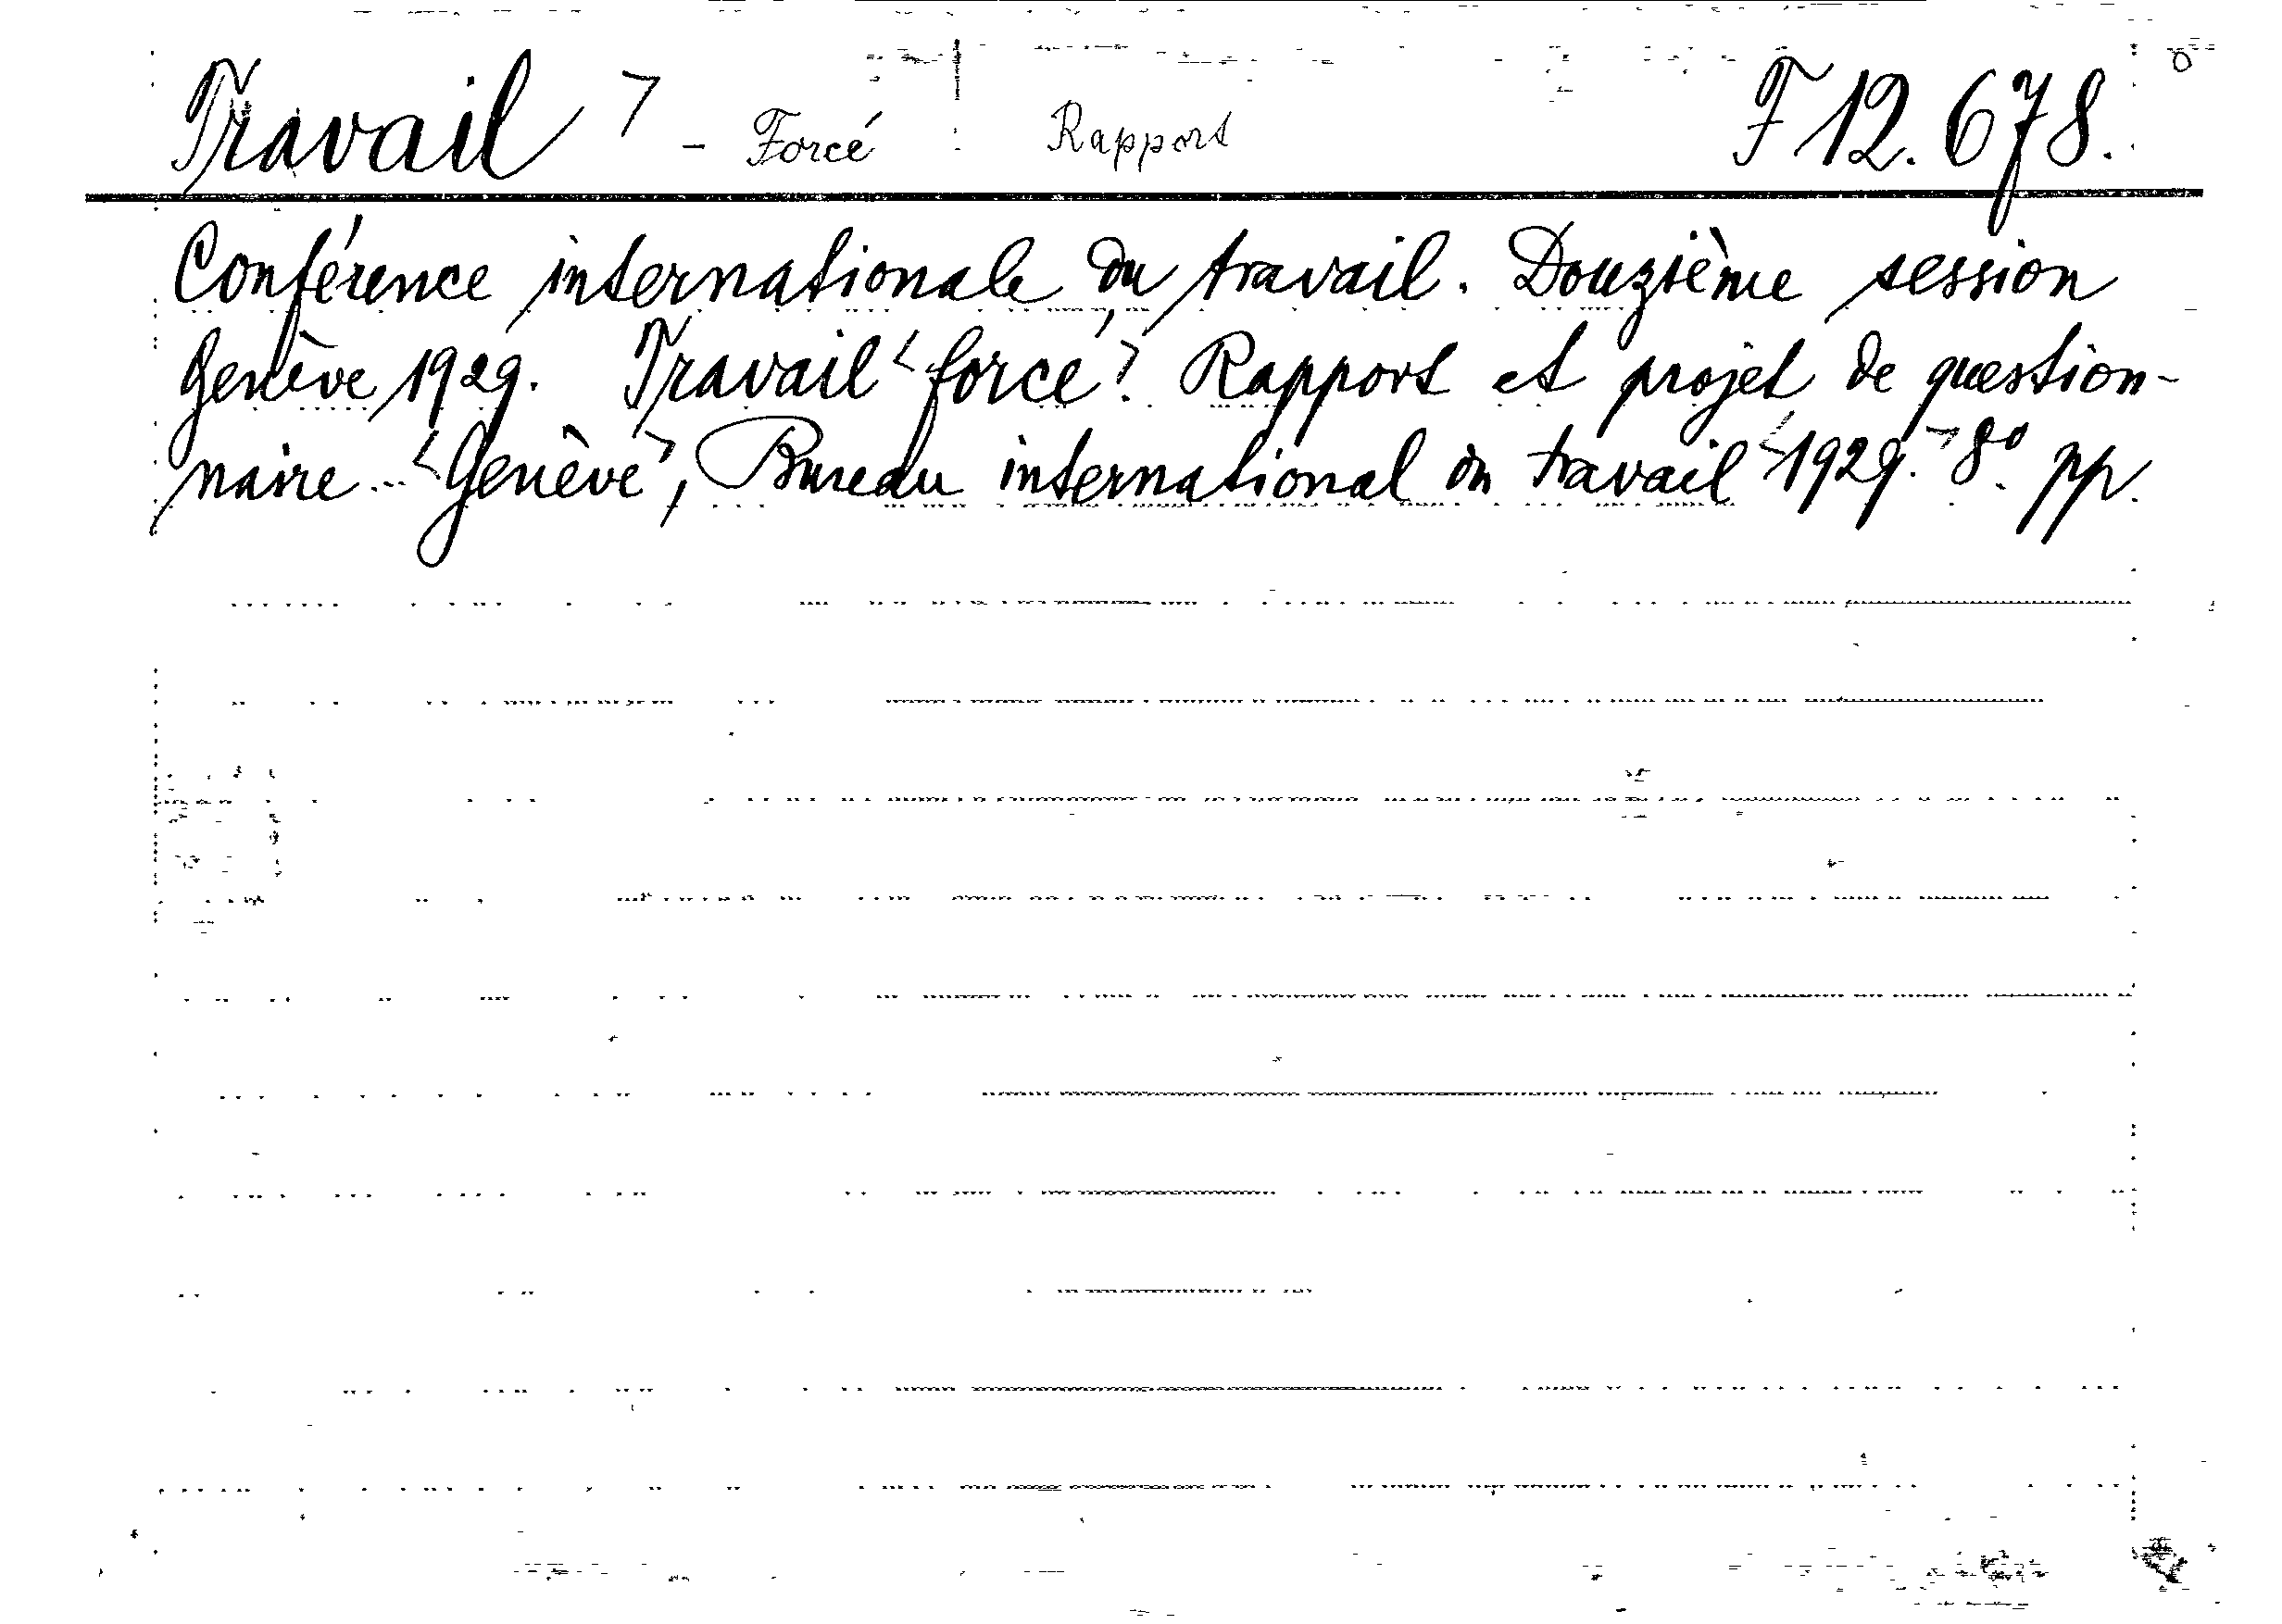 Travail > - Forcé : Rapport F 12.678.
Conférence internationale du travail. Douzième session
Genève, 1929. Travail <forcé>. Rapport et projet de question-
naire... <Genève>, Bureau international du travail <1929.> 8°. pp.